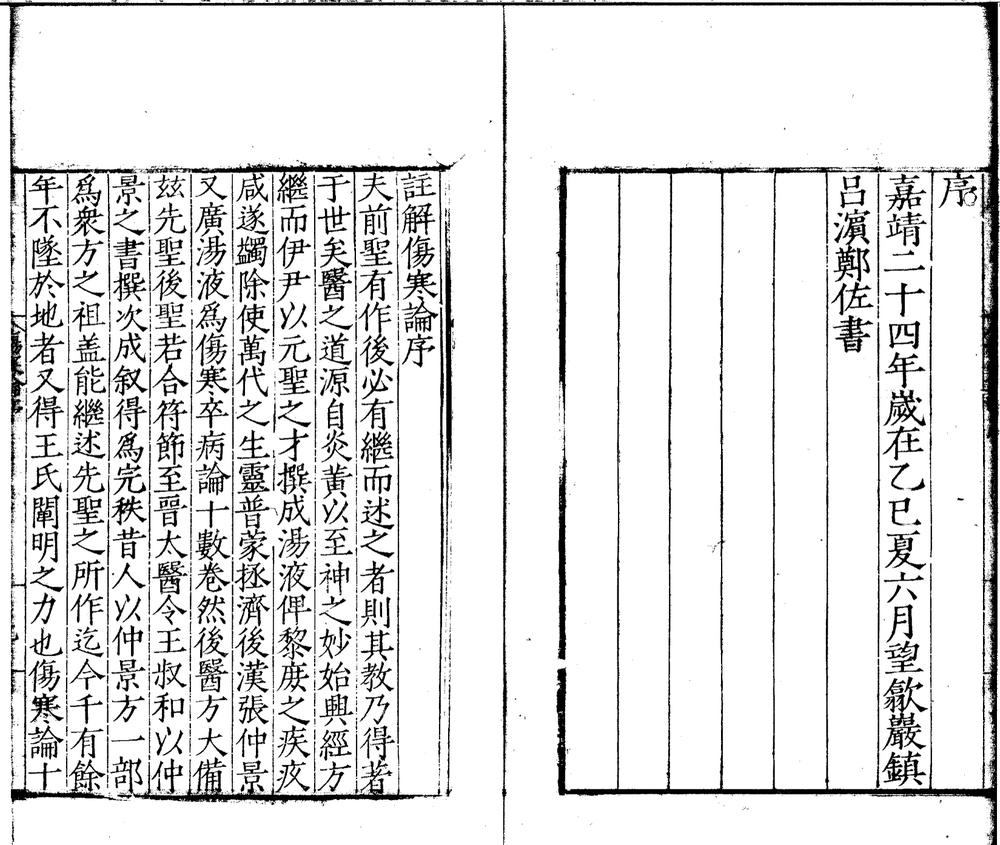 序
嘉靖二十四年歲在乙巳夏六月望歙巖鎮
呂濵鄭佐書
註解傷寒論序
夫前聖有作後必有繼而述之者則其教乃得著
于世矣醫之道源自炎黃以至神之妙始興經方
繼而伊尹以元聖之才撰成湯液俾黎庶之疾疚
咸遂蠲除使萬代之生靈普蒙拯濟後漢張仲景
又廣湯液爲傷寒卒病論十數卷然後醫方大備
茲先聖後聖若合符節至晉太醫令王叔和以仲
景之書撰次成叙得爲完秩昔人以仲景方一部
爲衆方之祖盖能繼述先聖之所作迄今千有餘
年不墜於地者又得王氏闡明之力也傷寒論十